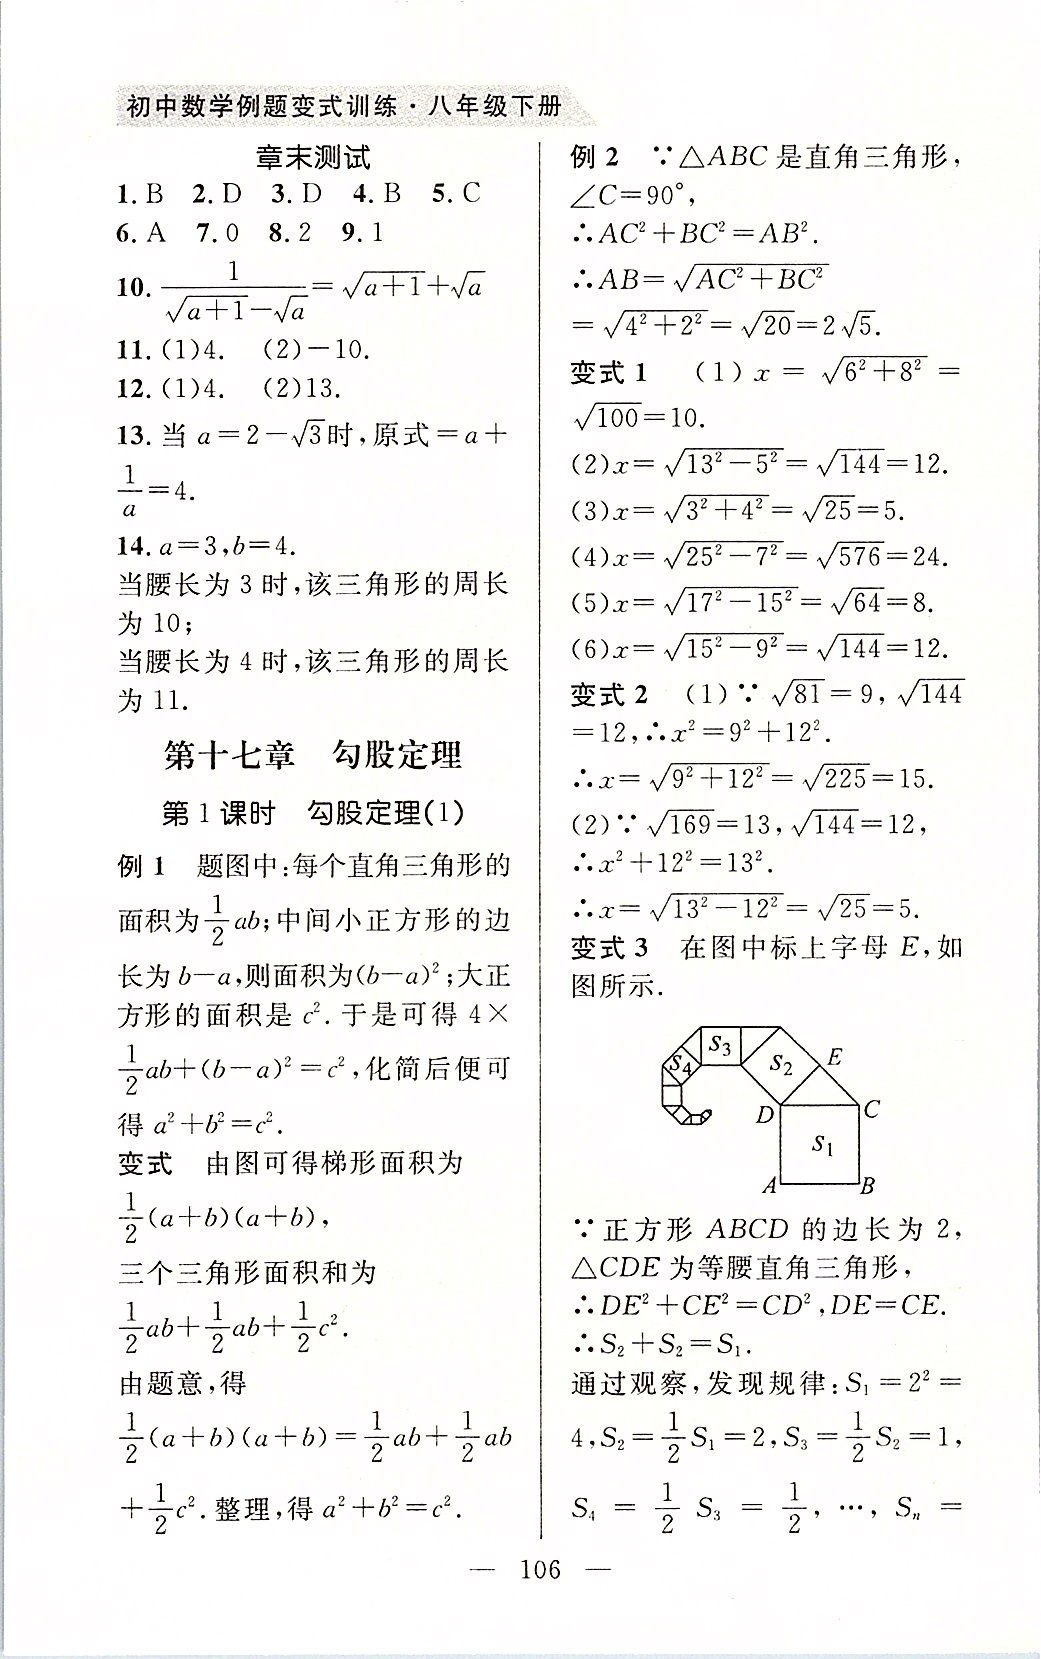 初中数学例题变式训练·八年级下册
章末测试
1. B  2. D  3. D  4. B  5. C
6. A  7. 0  8. 2  9. 1
10. 1/(√(a+1)-√a)=√(a+1)+√a
11. (1)4.  (2)-10.
12. (1)4.  (2)13.
13. 当 a=2-√3时,原式=a+
1/a=4.
14. a=3,b=4.
当腰长为 3 时,该三角形的周长
为 10;
当腰长为 4 时,该三角形的周长
为 11.
第十七章  勾股定理
第 1 课时  勾股定理(1)
例 1  题图中:每个直角三角形的
面积为1/2 ab;中间小正方形的边
长为 b-a,则面积为(b-a)²;大正
方形的面积是 c².于是可得 4×
1/2 ab+(b-a)²=c²,化简后便可
得 a²+b²=c².
变式  由图可得梯形面积为
1/2(a+b)(a+b),
三个三角形面积和为
1/2 ab+1/2 ab+1/2 c².
由题意,得
1/2(a+b)(a+b)=1/2 ab+1/2 ab
+1/2 c².整理,得 a²+b²=c².
例 2  ∵△ABC 是直角三角形,
∠C=90°,
∴AC²+BC²=AB².
∴AB=√(AC²+BC²)
=√(4²+2²)=√20=2√5.
变式 1  (1) x=√(6²+8²)=
√100=10.
(2)x=√(13²-5²)=√144=12.
(3)x=√(3²+4²)=√25=5.
(4)x=√(25²-7²)=√576=24.
(5)x=√(17²-15²)=√64=8.
(6)x=√(15²-9²)=√144=12.
变式 2  (1)∵√81=9,√144
=12,∴x²=9²+12².
∴x=√(9²+12²)=√225=15.
(2)∵√169=13,√144=12,
∴x²+12²=13².
∴x=√(13²-12²)=√25=5.
变式 3  在图中标上字母 E,如
图所示.
S₃
S₄
S₂
E
D
C
S₁
A
B
∵正方形 ABCD 的边长为 2,
△CDE 为等腰直角三角形,
∴DE²+CE²=CD²,DE=CE.
∴S₂+S₂=S₁.
通过观察,发现规律:S₁=2²=
4,S₂=1/2 S₁=2,S₃=1/2 S₂=1,
S₄=1/2 S₃=1/2,…,Sₙ=
— 106 —